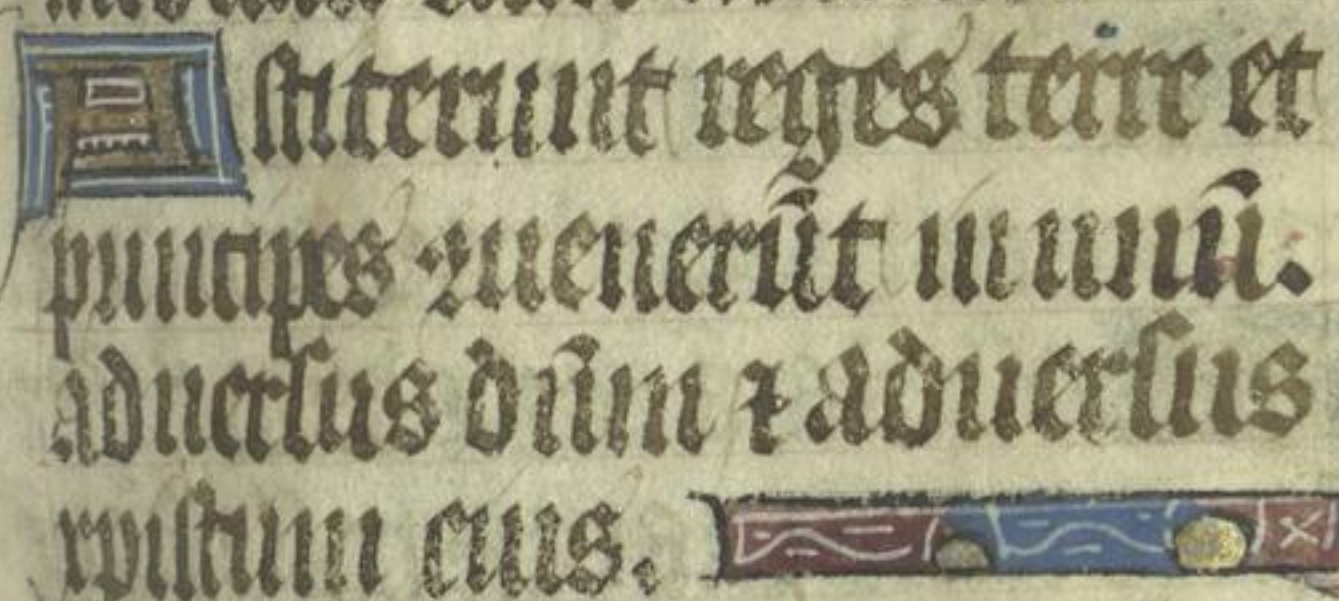 Astiterunt reges terre et
principes ꝯuenerūt in unū.
aduersus dn̄m ⁊ aduersus
xpistum eius.